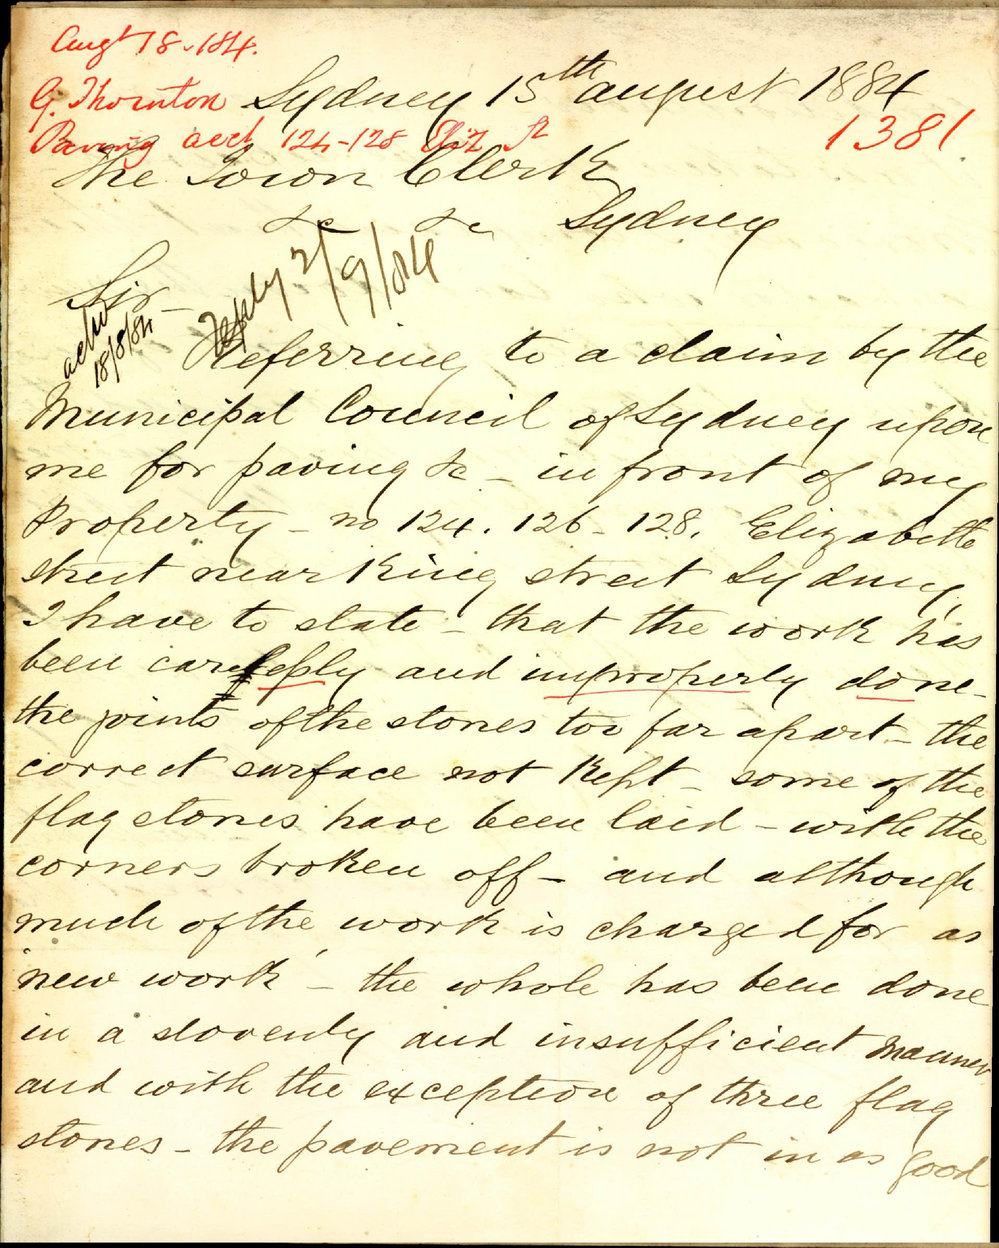 Augt 18-/84.
G. Thornton
Paving acct 124-128 Eliz St
1381
Sydney 15th august 1884
The Town Clerk
&c &c Sydney
Sir -
Reply 2/9/84
ackd
18/8/84
Referring to a claim by the
Municipal Council of Sydney upon
me for paving &c - in front of my
Property - no 124. 126 - 128. Elizabeth
street near King street Sydney,
I have to state - that the work has
been carelessly and improperly done -
the joints of the stones too far apart - the
correct surface not kept - some of the
flag stones have been laid - with the
corners broken off - and although
much of the work is charged for as
'new work' - the whole has been done
in a slovenly and insufficient manner
and with the exception of three flag
stones - the pavement is not in as good